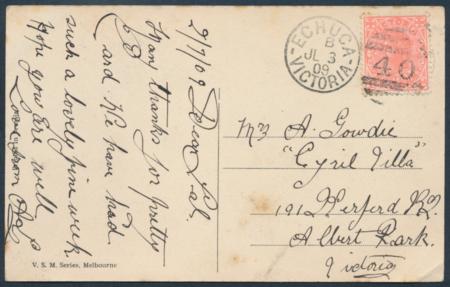 2/7/09 Dear Pal.
Many thanks for pretty
P.C. and We have had
such a lovely fine week.
Hope you are well
Love from
V. S. M. Series, Melbourne
ECHUCA
B
JL 3
09
VICTORIA
VICTORIA
40
Mrs A. Gowdie
"Cyril Villa"
191 Herferd Rd
Albert Park.
Victoria